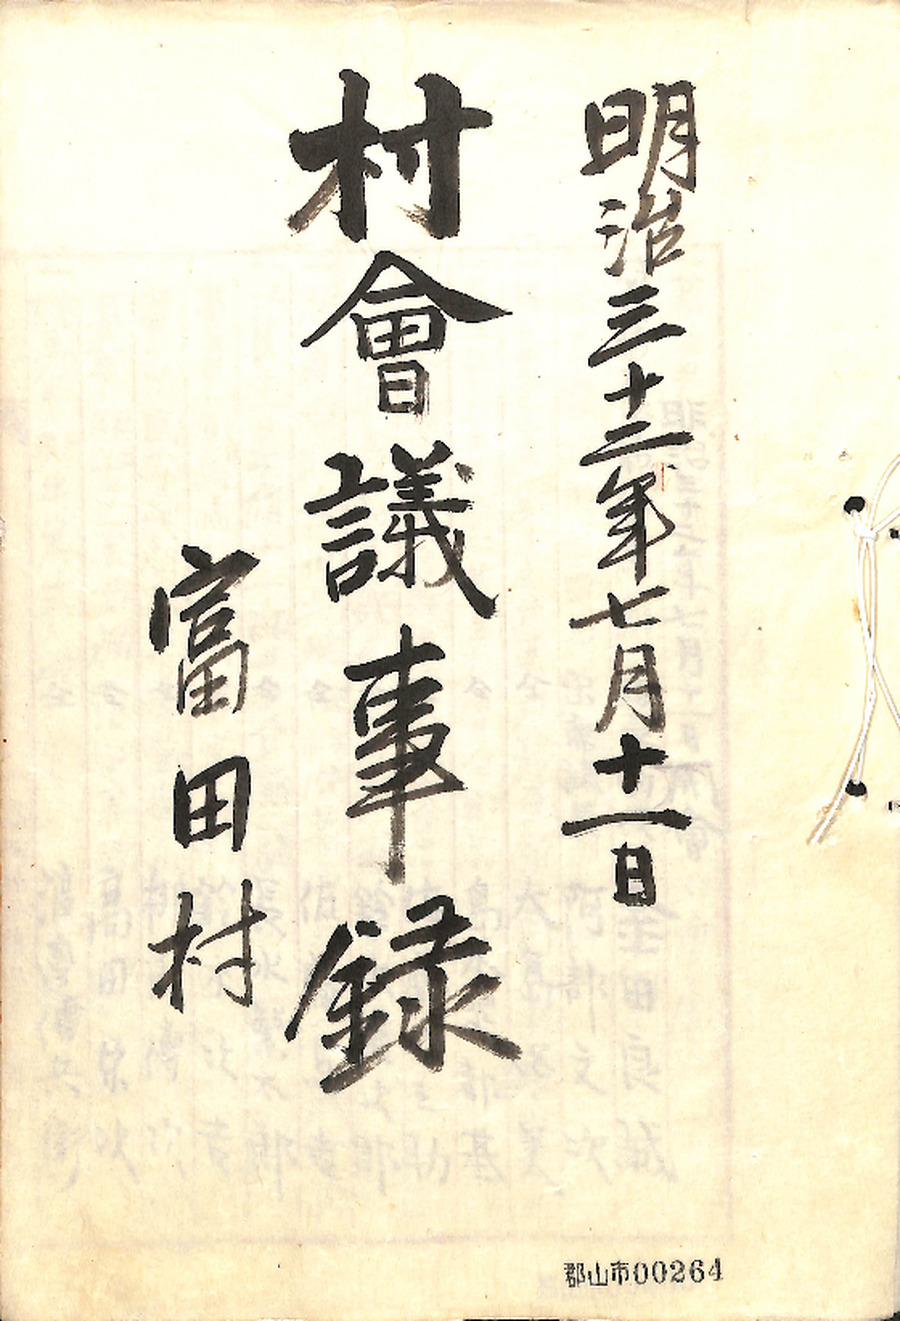 明治三十二年七月十一日
村會議事錄
富田村
郡山市00264